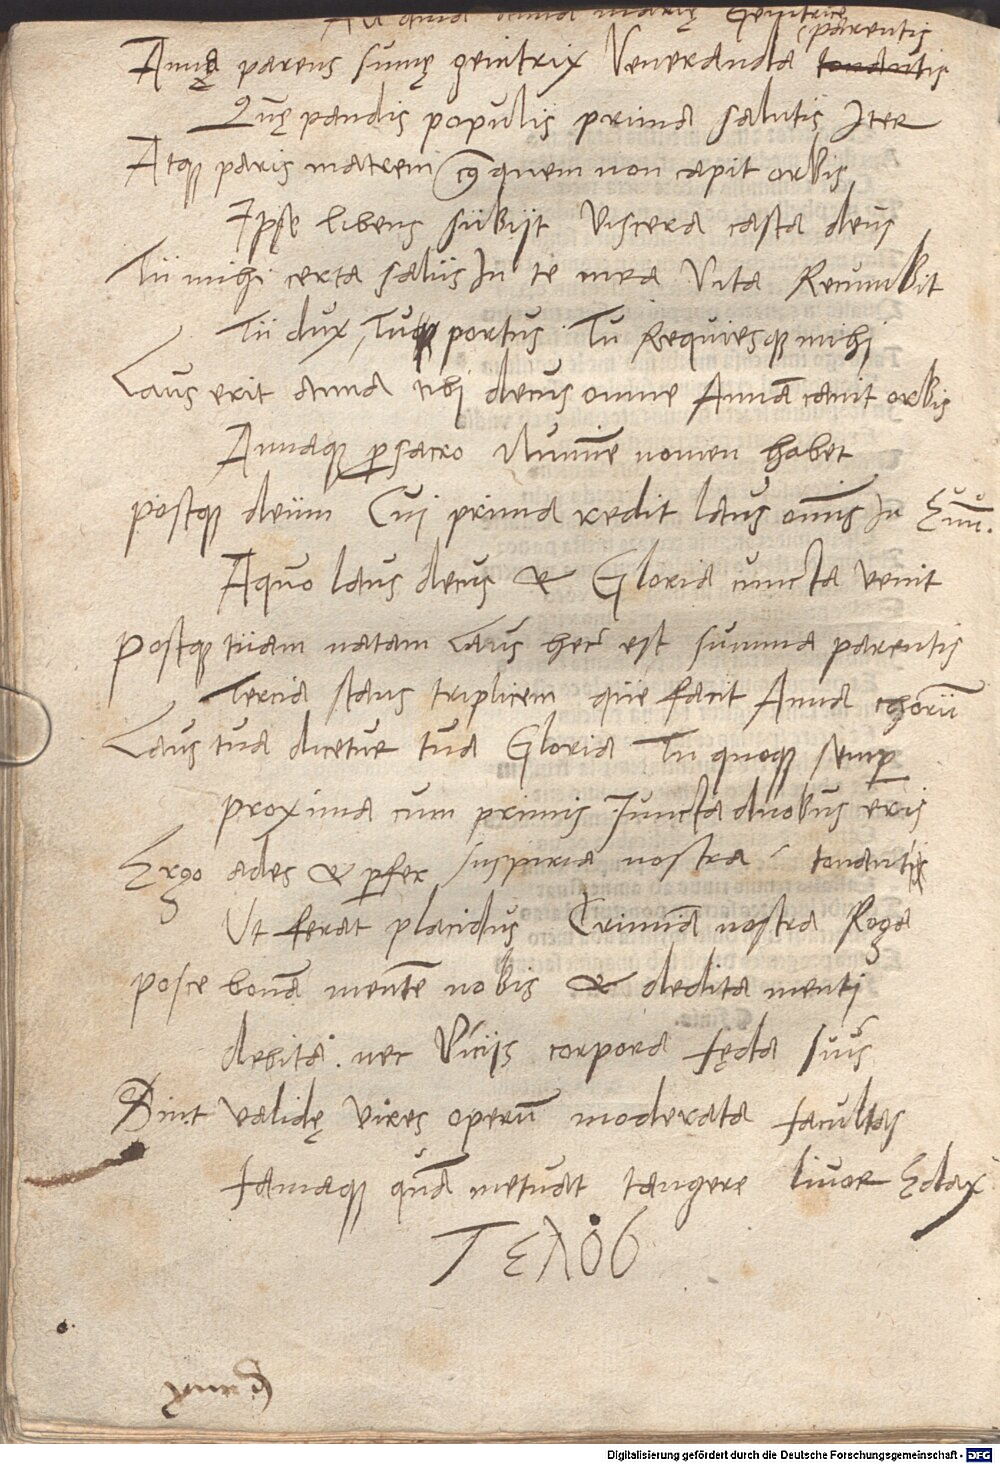 anna marię Genitrice
parentis
Anna parens summę genitrix Veneranda tonantis
Quę pandis populis prima salutis Iter
Atque paris matrem quem non capit orbis
Ipse libens subijt viscera casta deus
Tu mihi certa salus In te mea Vita Recumbit
Tu dux, Tu portus Tu Requiesque mihi
Laus erit anna tibi decus omne Annā canit orbis
Annaque p sacro Numine nomen habet
postque deum Cui prima redit laus omnis In
A quo laus decus & Gloria cuncta venit
postque tuam natam Laus hec est summa parentis
Tercia stans triplicem que facit Anna chorū
Laus tua dicetur tua Gloria Tu quoque semp
proxima cum primis Juncta duobus eris
Ergo ades & pfer suspiria nostra tonanti
Ut ferat placidus Crimina nostra Roga
posce bonā mentē nobis & dedita menti
debita nec Vicijs corpora fęda suis
Sint validę vires operū moderata facultas
famaque quā metuat tangere livor Edax
Τελος